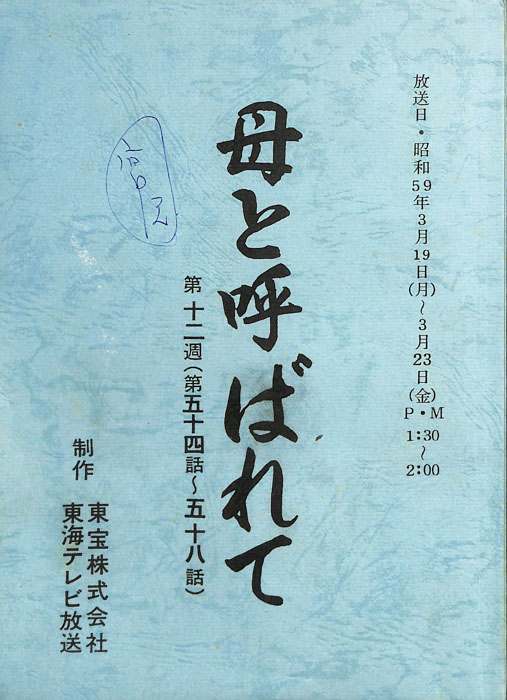 放送日・昭和59年3月19日(月)～3月23日(金)
P・M 1:30～2:00
母と呼ばれて
第十二週(第五十四話～五十八話)
制作 東宝株式会社
東海テレビ放送